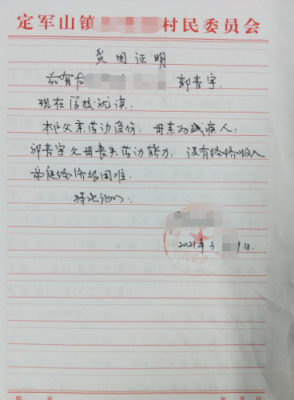 定军山镇 村民委员会
贫困证明
兹有 郭青宇
现在 校就读。
本人父亲劳动 ，母亲为残疾人，
郭青宇父母丧失劳动能力，没有经济收入
家庭经济很困难。
特此证明
2021年3 9日